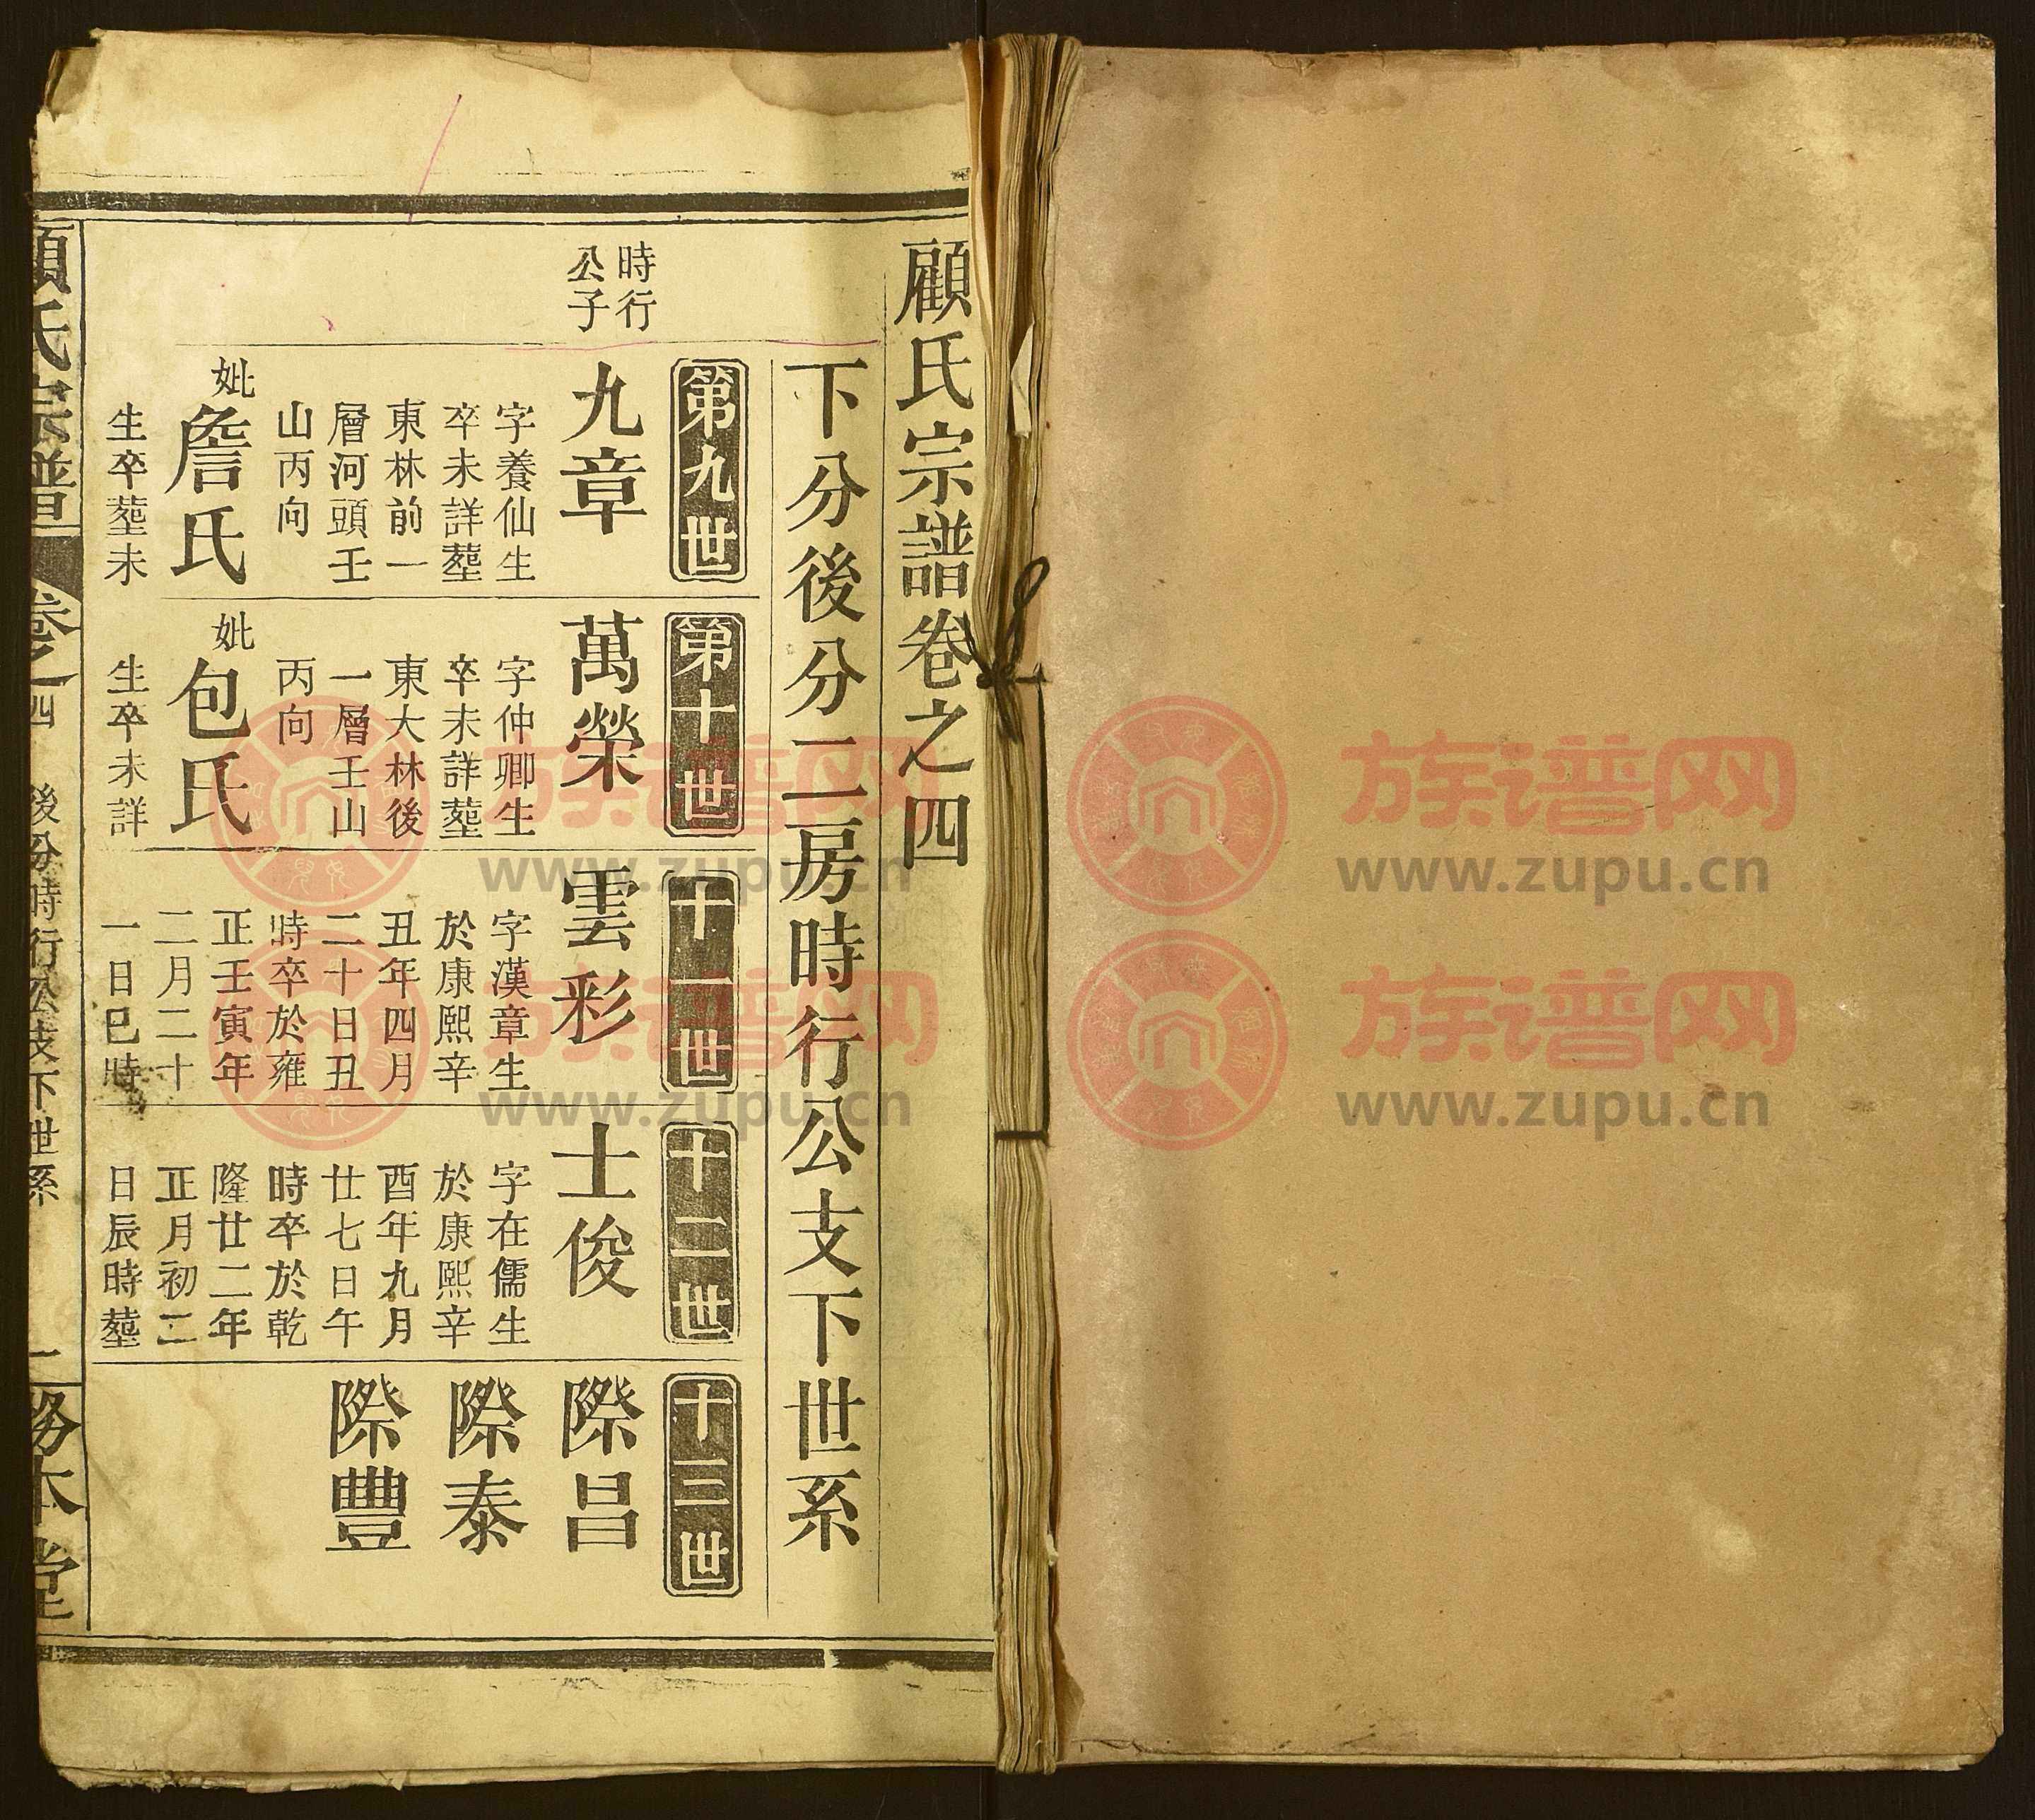 顧氏宗譜卷之四
下分後分二房時行公支下世系
時行
公子
第九世
九章
字養仙生
卒未詳塟
東林前一
層河頭壬
山丙向
妣
詹氏
生卒塟未
第十世
萬榮
字仲卿生
卒未詳塟
東大林後
一層壬山
丙向
妣
包氏
生卒未詳
十一世
雲彩
字漢章生
於康熙辛
丑年四月
二十日丑
時卒於雍
正壬寅年
二月二十
一日巳時
十二世
士俊
字在儒生
於康熙辛
酉年九月
廿七日午
時卒於乾
隆廿二年
正月初二
日辰時塟
十三世
際昌
際泰
際豐
顧氏宗譜
卷之四
後分時行公支下世系
一
務本堂
族谱网
www.zupu.cn
族谱网
www.zupu.cn
族谱网
www.zupu.cn
族谱网
www.zupu.cn